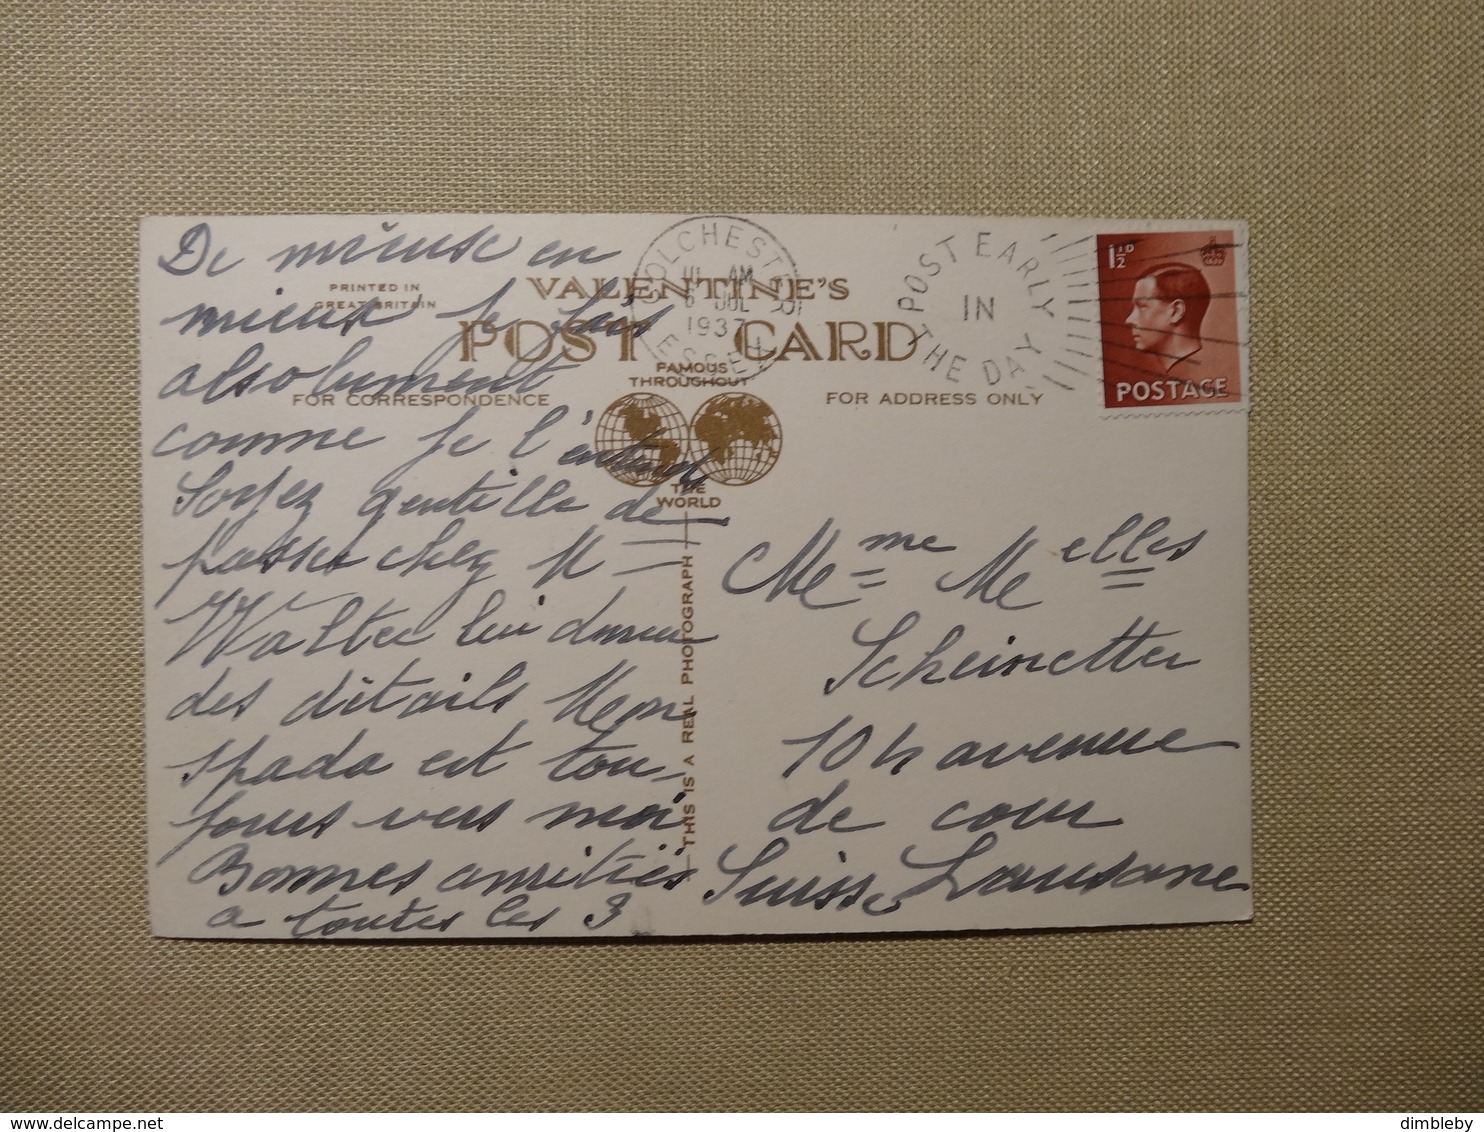 De mieux en
mieux je fais
absolument
comme je l'entend
Soyez gentille de
passer chez M
Walter lui donner
des détails Mon
spada est tou-
jours vers moi
Bonnes amitiés
a toutes les 3
PRINTED IN
GREAT BRITAIN
VALENTINE'S
POST CARD
FAMOUS
THROUGHOUT
THE
WORLD
FOR CORRESPONDENCE
FOR ADDRESS ONLY
THIS IS A REAL PHOTOGRAPH
COLCHESTER
AM
6 JUL
1937
ESSEX
POST EARLY
IN
THE DAY
1½D
POSTAGE
Mme Melles
104 avenue
de cour
Suisse Lausanne
delcampe.net
dimbleby